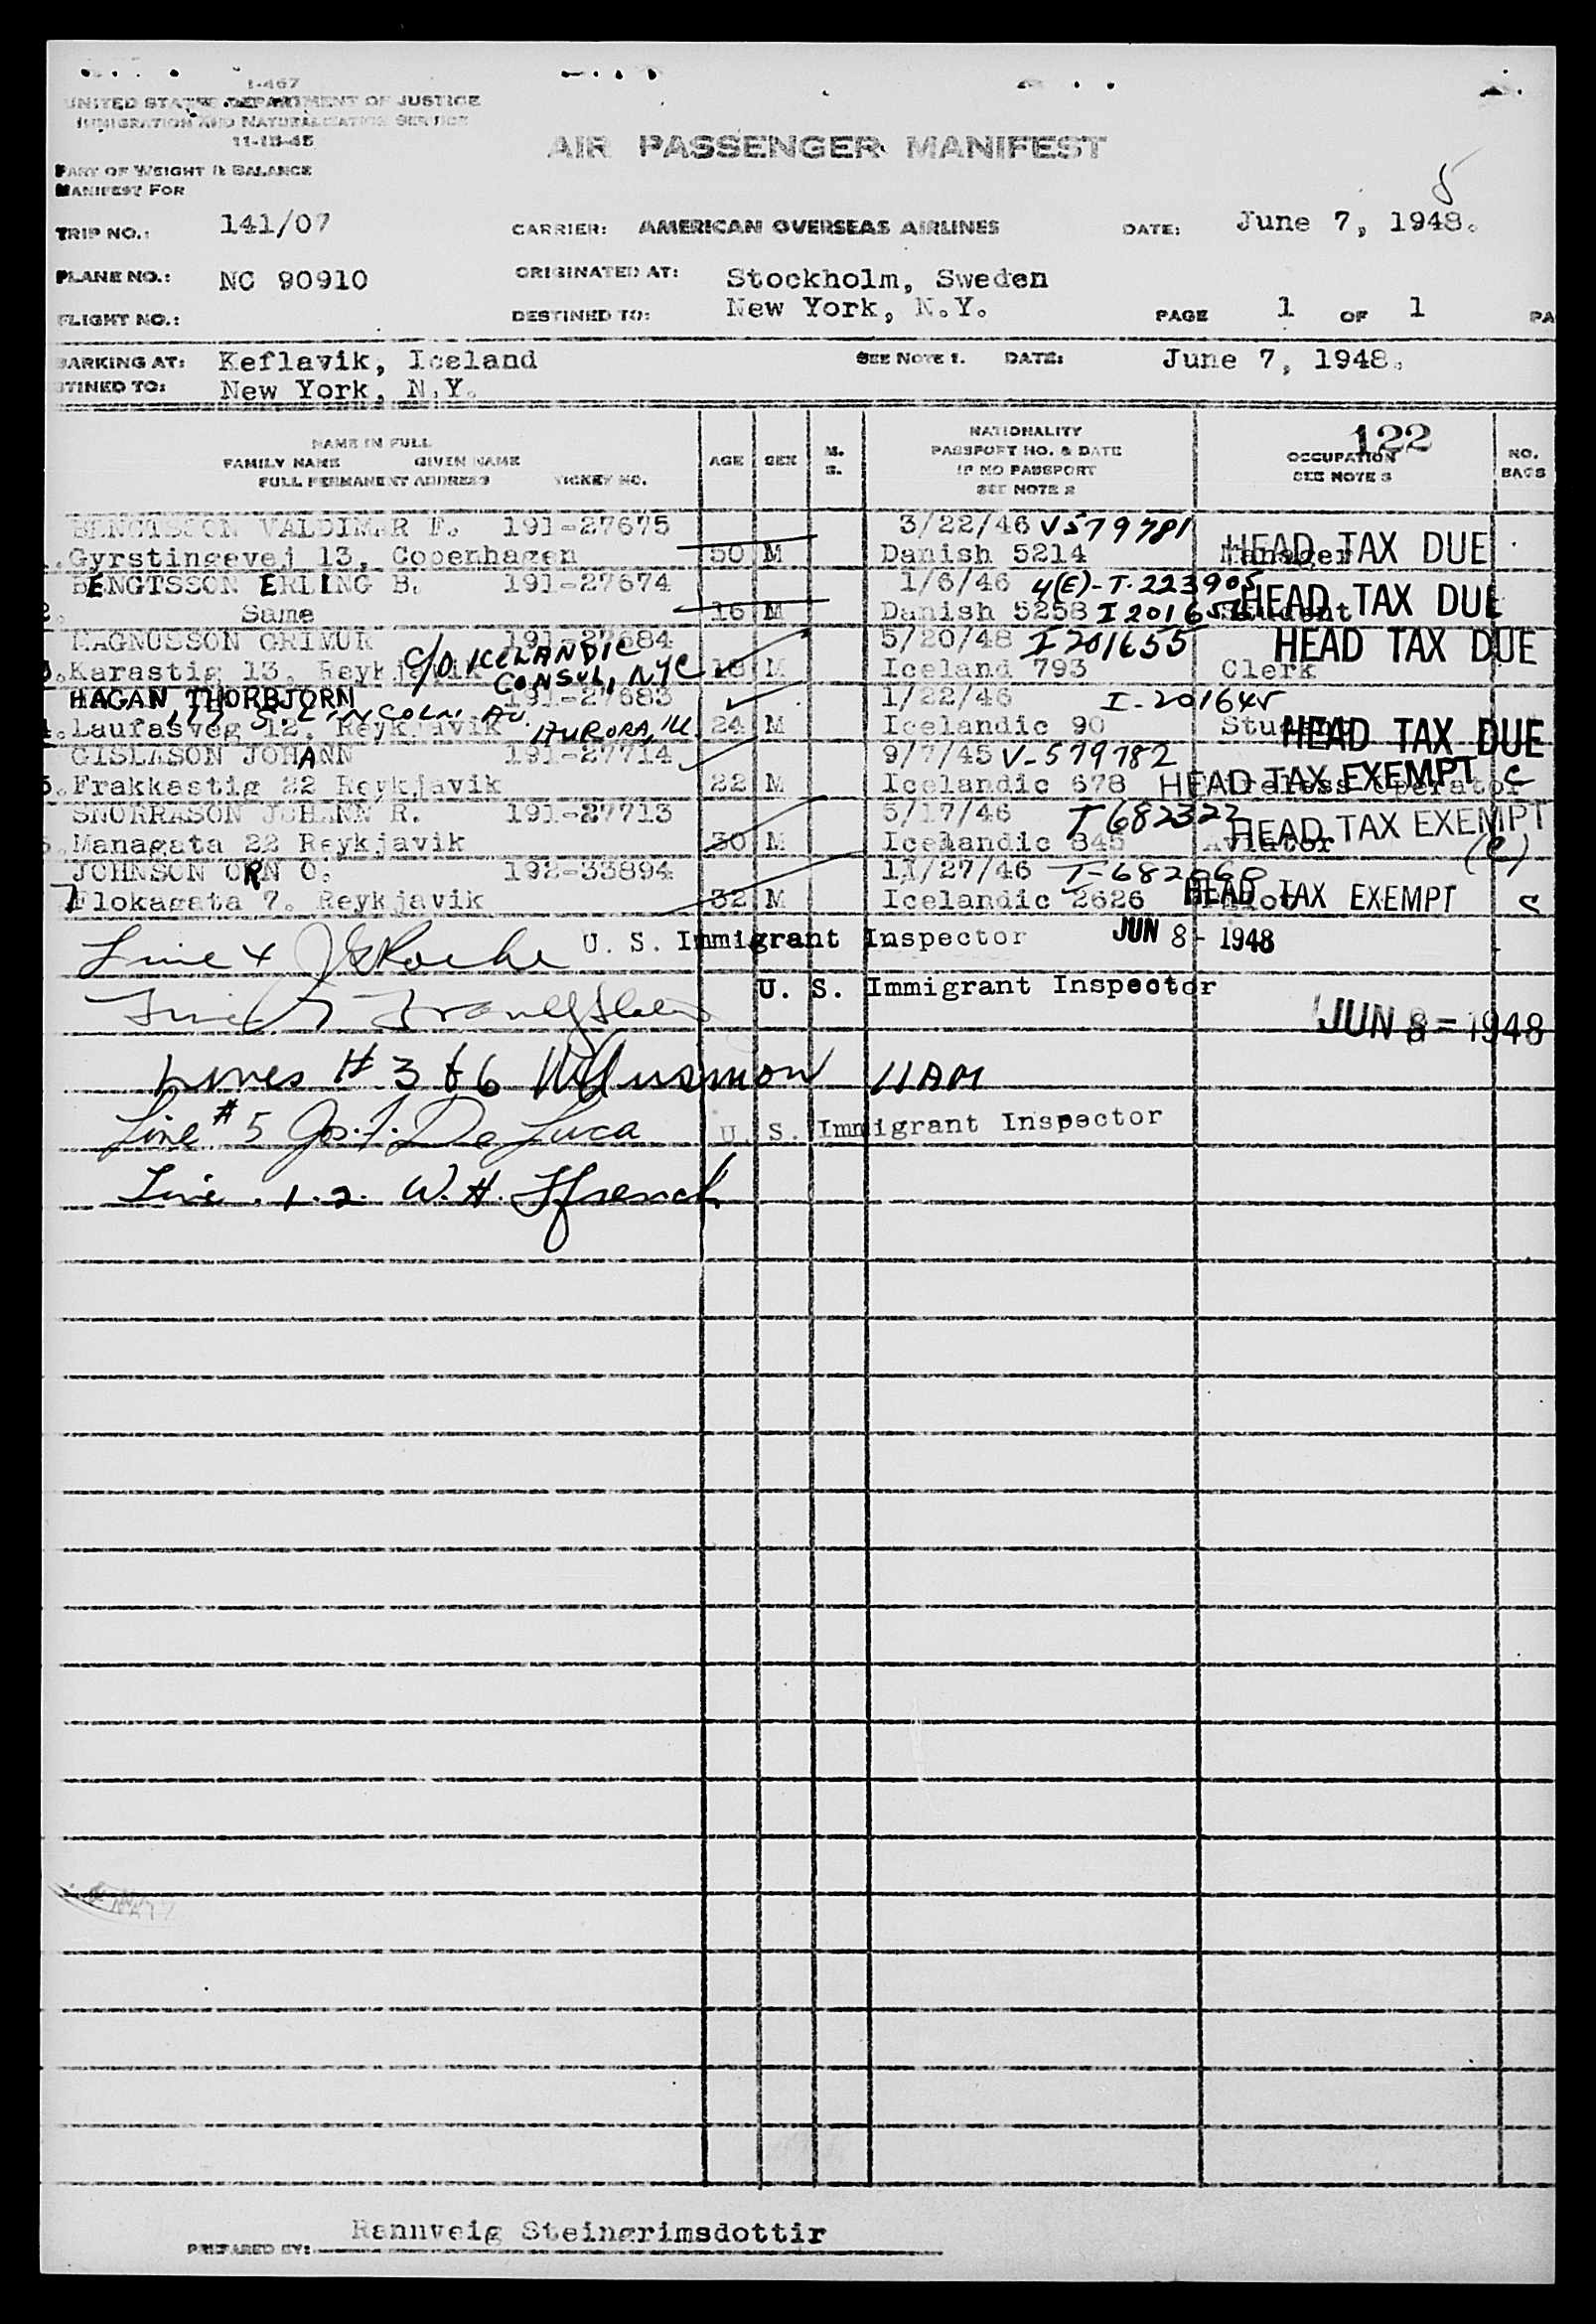 I-467
UNITED STATES DEPARTMENT OF JUSTICE
IMMIGRATION AND NATURALIZATION SERVICE
11-15-45
AIR PASSENGER MANIFEST
PART OF WEIGHT & BALANCE
MANIFEST FOR
5
TRIP NO.: 141/07 CARRIER: AMERICAN OVERSEAS AIRLINES DATE: June 7, 1948.
PLANE NO.: NC 90910 ORIGINATED AT: Stockholm, Sweden
FLIGHT NO.: DESTINED TO: New York, N.Y. PAGE 1 OF 1 PA
BARKING AT: Keflavik, Iceland SEE NOTE 1. DATE: June 7, 1948.
STINED TO: New York, N.Y.
122
NAME IN FULL
FAMILY NAME GIVEN NAME
FULL PERMANENT ADDRESS TICKET NO.
AGE SEX M. S.
NATIONALITY
PASSPORT NO. & DATE
IF NO PASSPORT
SEE NOTE 2
OCCUPATION
SEE NOTE 3
NO. BAGS
BENGTSSON VALDIMAR F. 191-27675 3/22/46 V579781
1. Gyrstingevej 13, Copenhagen 50 M Danish 5214 Manager HEAD TAX DUE
BENGTSSON ERLING B. 191-27674 1/6/46 4(E)-T-223905
2. Same 16 M Danish 5258 I 201656 Student HEAD TAX DUE
MAGNUSSON GRIMUR 191-27684 5/20/48 I 201655 HEAD TAX DUE
C/O ICELANDIC CONSUL, NYC
3. Karastig 13, Reykjavik 18 M Iceland 793 Clerk
HAGAN, THORBJORN 191-27683 1/22/46 I-201645
S. LINCOLN AV. AURORA, ILL
4. Laufasveg 12, Reykjavik 24 M Icelandic 90 Student HEAD TAX DUE
GISLASON JOHANN 191-27714 9/7/45 V-579782
5. Frakkastig 22 Reykjavik 22 M Icelandic 678 Wireless Operator HEAD TAX EXEMPT C
SNORRASON JOHANN R. 191-27713 5/17/46 T 682322
6. Managata 22 Reykjavik 30 M Icelandic 845 Aviator HEAD TAX EXEMPT (C)
JOHNSON ORN O. 192-33894 11/27/46
7 Flokagata 7. Reykjavik 32 M Icelandic 2626 Pilot HEAD TAX EXEMPT C
Line 4 J Roche U. S. Immigrant Inspector JUN 8 - 1948
Line 7 U. S. Immigrant Inspector
JUN 8 - 1948
Lines # 3 & 6 11 AM
Line # 5 Jos. F. De Luca U. S. Immigrant Inspector
Line 1. 2. W. H. Ffrench
Rannveig Steingrimsdottir
PREPARED BY: